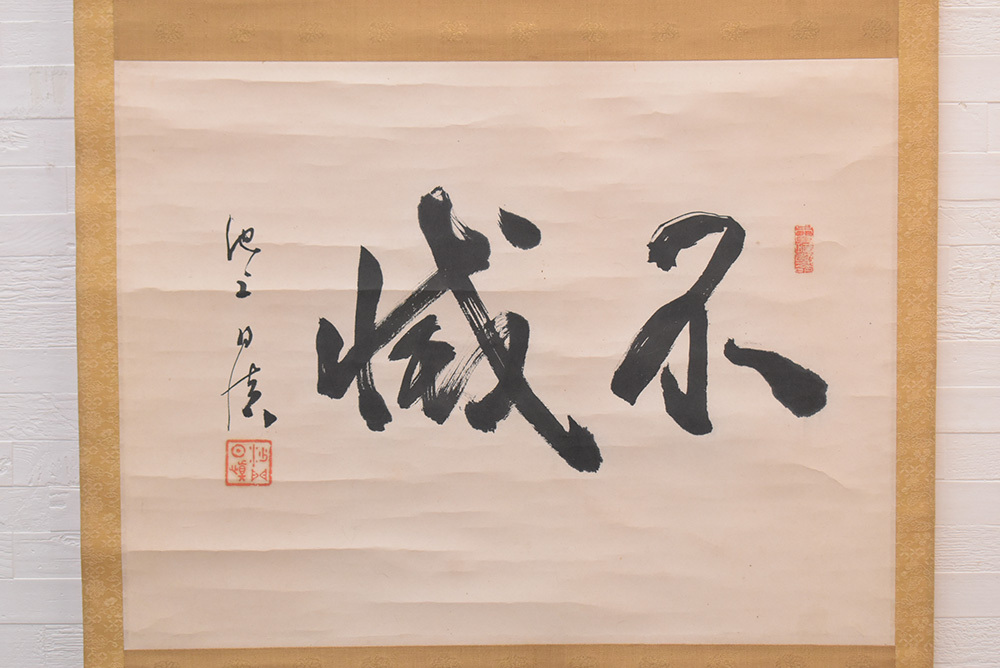 不滅
池上日慎